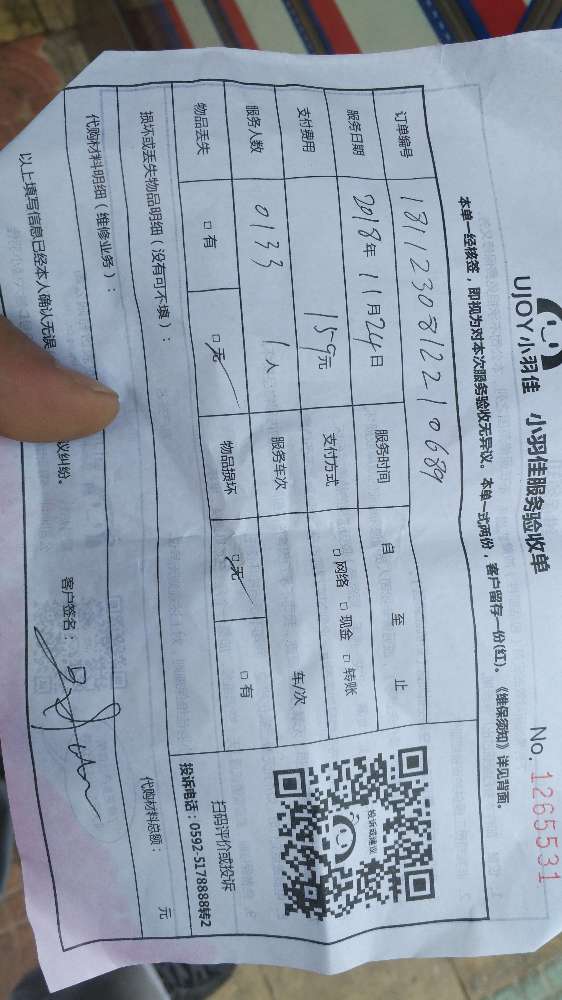 UJOY小羽佳 小羽佳服务验收单 No. 1265531
本单一经核签，即视为对本次服务验收无异议。本单一式两份，客户留存一份(红)。《维保须知》详见背面。
订单编号 1811230812210689
服务日期 2018年11月24日 服务时间 自 至 止
支付费用 159元 支付方式 □网络 □现金 □转账
服务人数 0133 1人 服务车次 车/次
物品丢失 □有 □无 物品损坏 □无 □有
投诉或建议
扫码评价或投诉
投诉电话：0592-5178888转2
损坏或丢失物品明细（没有可不填）：
代购材料明细（维修业务）： 代购材料总额： 元
以上填写信息已经本人确认无误 议纠纷。 客户签名：